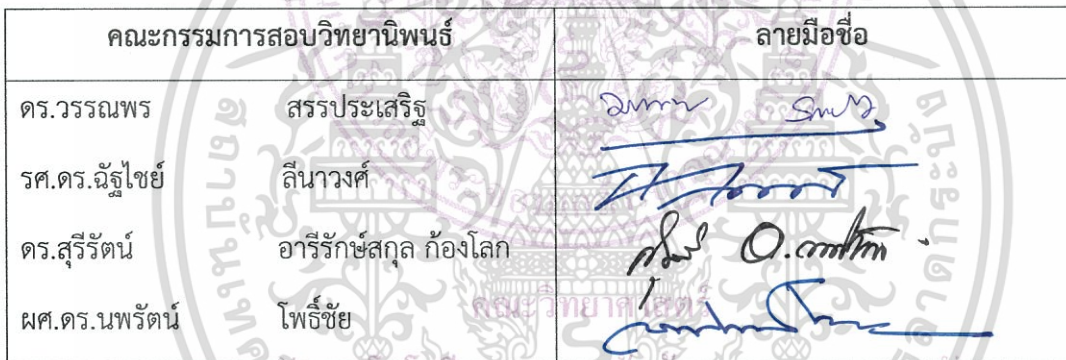 คณะกรรมการสอบวิทยานิพนธ์ ลายมือชื่อ
ดร.วรรณพร สรรประเสริฐ
รศ.ดร.ฉัฐไชย์ ลีนาวงศ์
ดร.สุรีรัตน์ อารีรักษ์สกุล ก้องโลก
ผศ.ดร.นพรัตน์ โพธิ์ชัย
คณะวิทยาศาสตร์